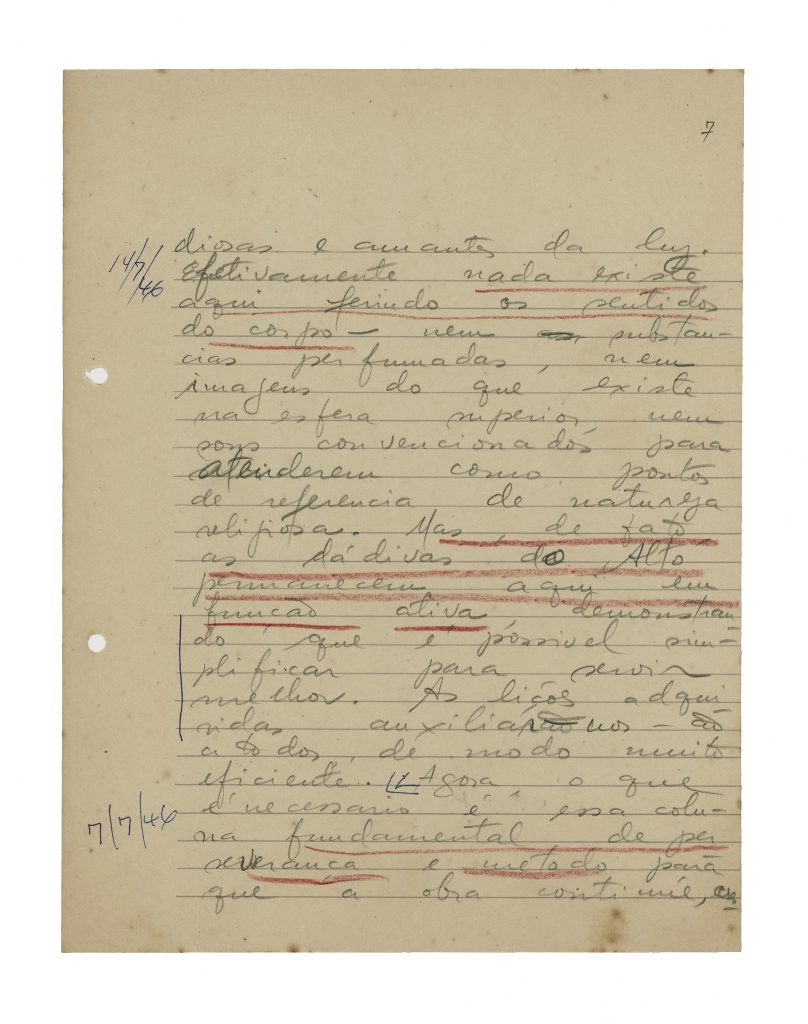 7
diosas e amantes da luz.
14/7/46
Efetivamente nada existe
aqui ferindo os sentidos
do corpo — nem substan-
cias perfumadas, nem
imagens do que existe
na esfera superior, nem
sons convencionados para
atenderem como pontos
de referencia de natureza
religiosa. Mas, de fato
as dádivas do Alto
permanecem aqui em
função ativa demonstran
do que é possivel sim-
plificar para servir
melhor. As lições adqui
ridas auxiliar nos-ão
a todos, de modo muito
eficiente. Agora, o que
7/7/46
é necessario é essa colu-
na fundamental de per
severança e metodo para
que a obra continúe,